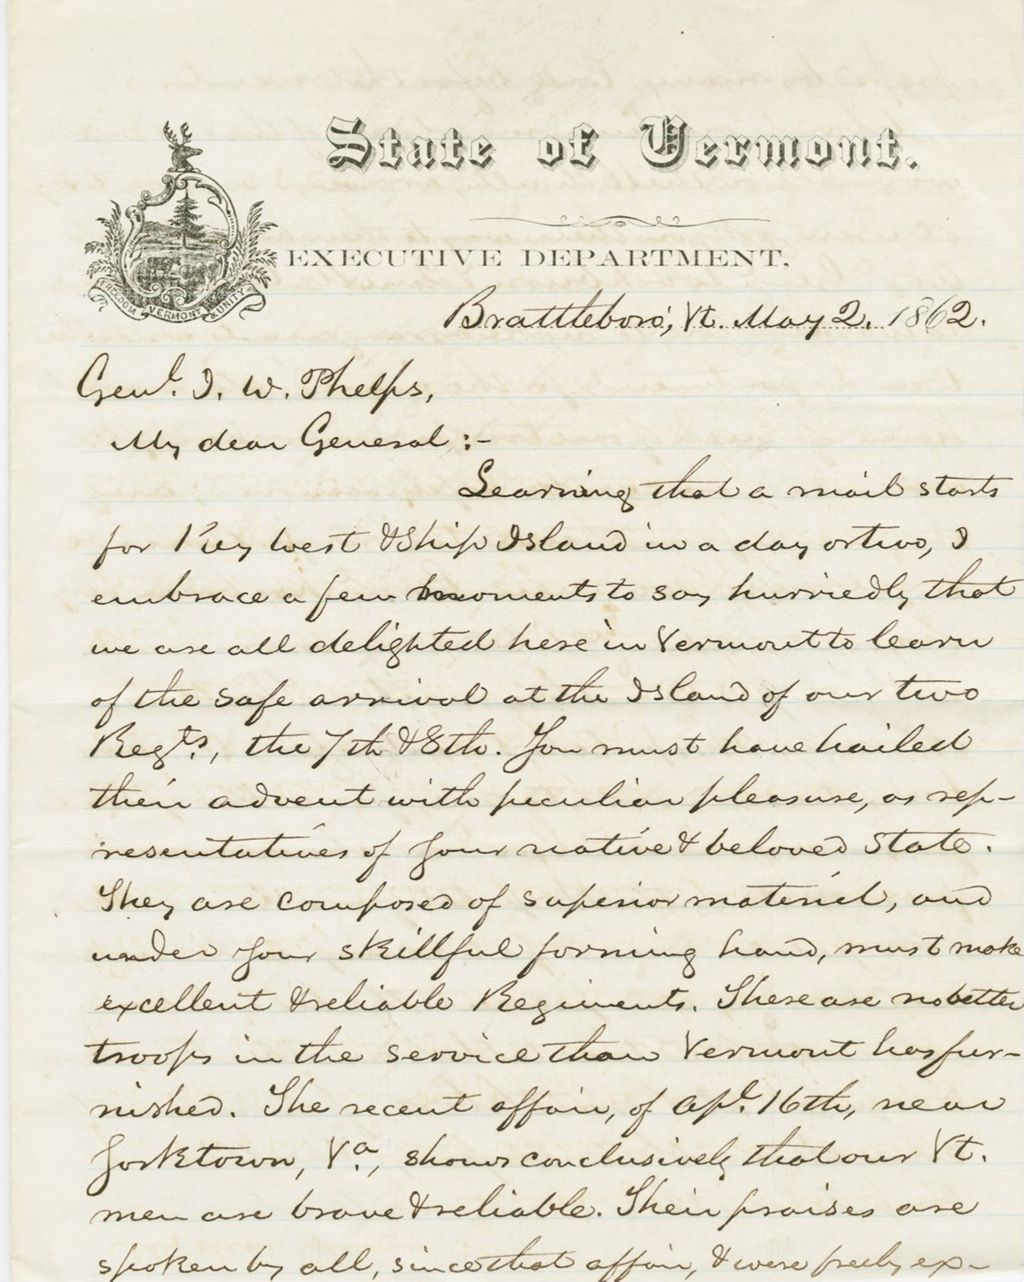 State of Vermont.
EXECUTIVE DEPARTMENT,
FREEDOM VERMONT & UNITY
Brattleboro', Vt. May 2. 1862.
Genl. J. W. Phelps,
My dear General :-
Learning that a mail starts
for Key West & Ship Island in a day or two, I
embrace a few moments to say hurriedly that
we are all delighted here in Vermont to learn
of the safe arrival at the Island of our two
Regts, the 7th & 8th. You must have hailed
their advent with peculiar pleasure, as rep-
resentatives of your native & beloved State.
They are composed of superior material, and
under your skillful forming hand, must make
excellent & reliable Regiments. There are no better
troops in the service than Vermont has fur-
nished. The recent affair, of Apl. 16th, near
Yorktown, Va., shows conclusively that our Vt.
men are brave & reliable. Their praises are
spoken by all, since that affair, & were freely ex-